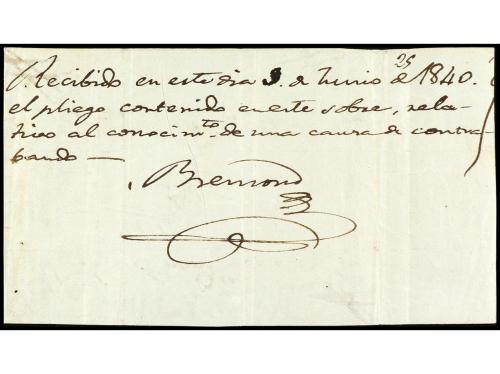 Recibido en este dia 9 de Junio de 1840.
el pliego contenido en este sobre, rela-
tivo al conocimto. de una causa de contra-
bando —
Bremond